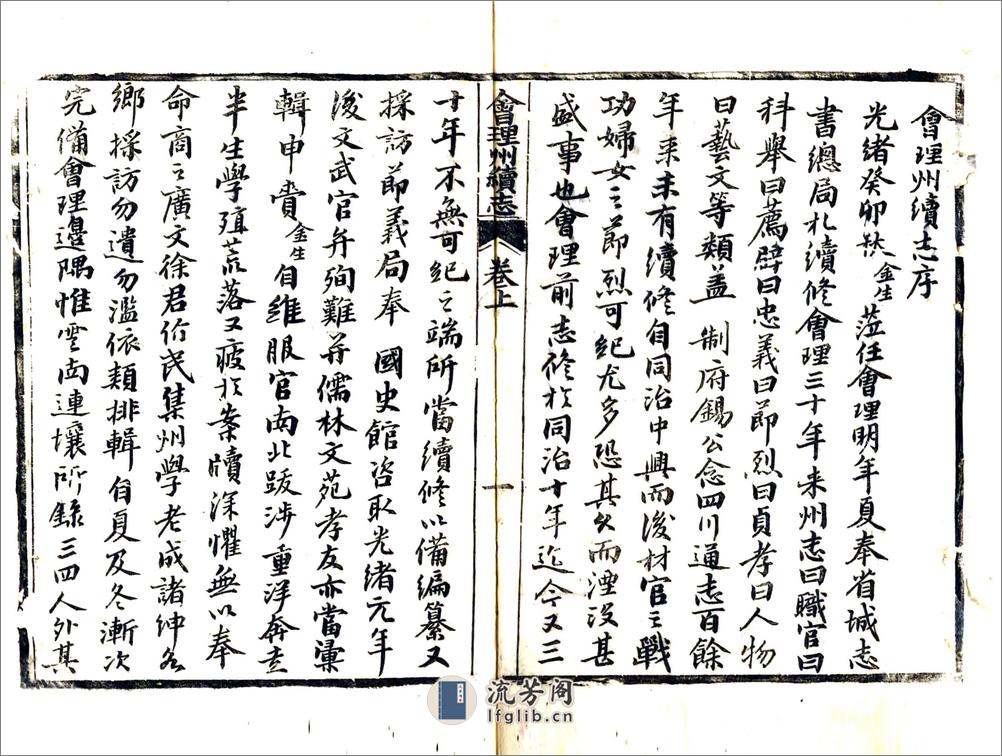 會理州續志序
光緒癸卯秋金生蒞任會理明年夏奉省城志
書總局札續修會理三十年来州志曰職官曰
科舉曰薦辟曰忠義曰節烈曰貞孝曰人物
曰藝文等類盖 制府錫公念四川通志百餘
年来未有續修自同治中興而後材官之戰
功婦女之節烈可紀尤多恐其久而湮没甚
盛事也會理前志修於同治十年迄今又三
會理州續志 卷上 一
十年不無可紀之端所當續修以備編纂又
採訪節義局奉 國史館咨取光緒元年
後文武官弁殉難并儒林文苑孝友亦當彙
輯申賫金生自維服官南北跋涉重洋奔走
半生學殖荒落又疲於案牘深懼無以奉
命商之廣文徐君佐民集州學老成諸紳各
鄉採訪勿遺勿濫依類排輯自夏及冬漸次
完備會理邊隅惟雲南連壤所錄三四人外其
流芳阁
lfglib.cn